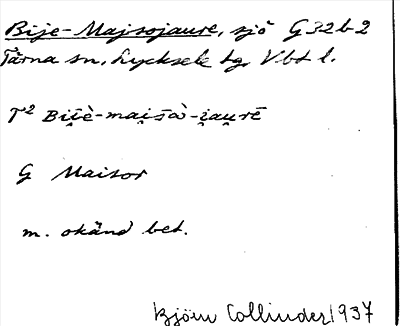 Bije-Majsojaure, sjö G32b2
Tärna sn, Lycksele tg. Vbt l.
T² Bi̯i̯ḕ-mai̯sā̀-i̯au̯rē
G Maisor
m. okänd bet.
Björn Collinder 1937